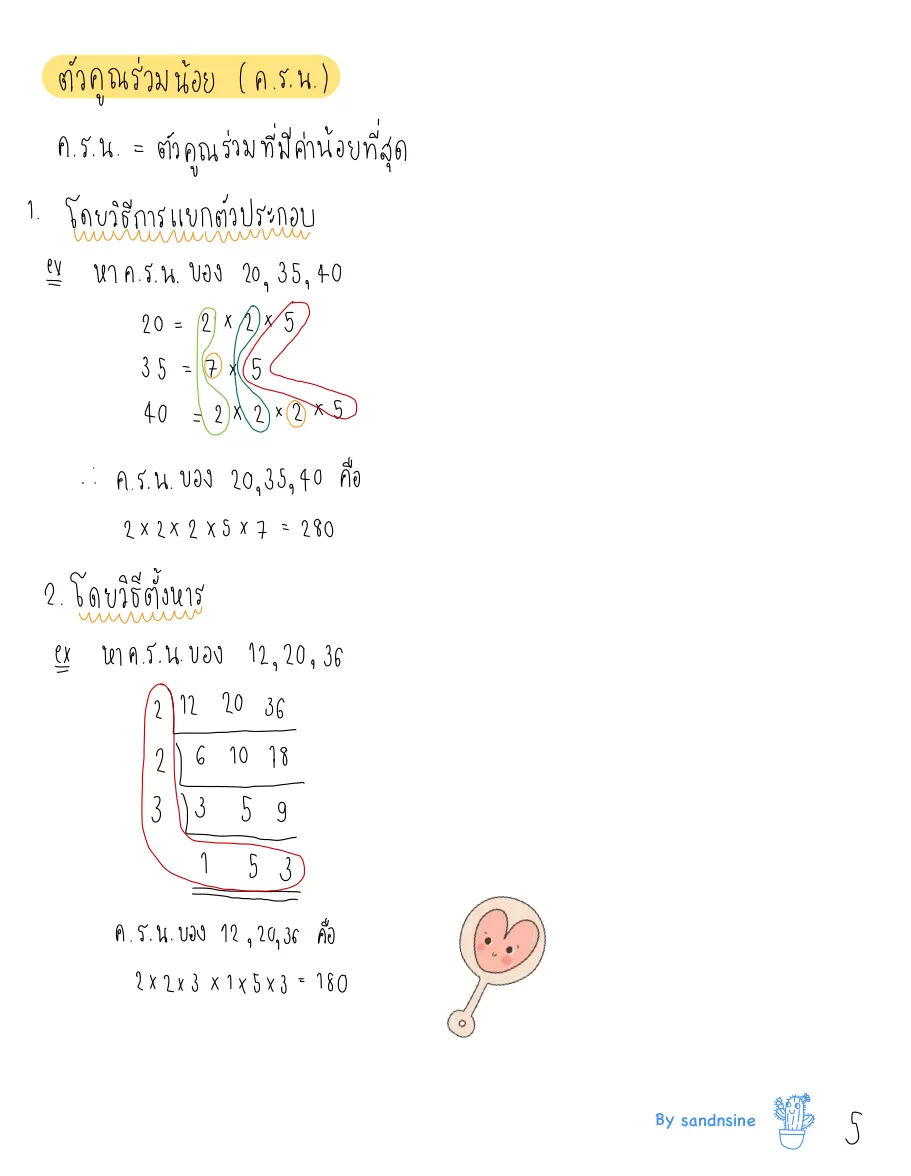 ตัวคูณร่วมน้อย (ค.ร.น.)
ค.ร.น. = ตัวคูณร่วมที่มีค่าน้อยที่สุด
1. โดยวิธีการแยกตัวประกอบ
ex หา ค.ร.น. ของ 20, 35, 40
20 = 2 × 2 × 5
35 = 7 × 5
40 = 2 × 2 × 2 × 5
∴ ค.ร.น. ของ 20, 35, 40 คือ
2 × 2 × 2 × 5 × 7 = 280
2. โดยวิธีตั้งหาร
ex หา ค.ร.น. ของ 12, 20, 36
2 12 20 36
2 6 10 18
3 3 5 9
1 5 3
ค.ร.น. ของ 12, 20, 36 คือ
2 × 2 × 3 × 1 × 5 × 3 = 180
By sandnsine
5